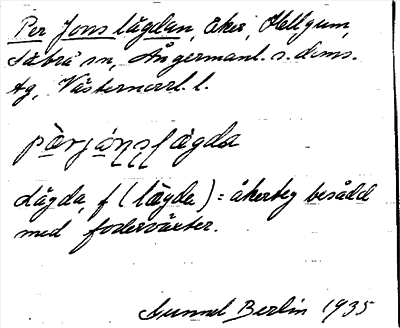 Per Jons lägdan, åker, Hellgum,
Säbrå sn, Ångermanl. s. doms.
tg, Västernorrl. l.
pæ̀rjónsḷægda
Lägda, f (lægda) = åkerteg besådd
med foderväxter.
Gunnel Berlin 1935